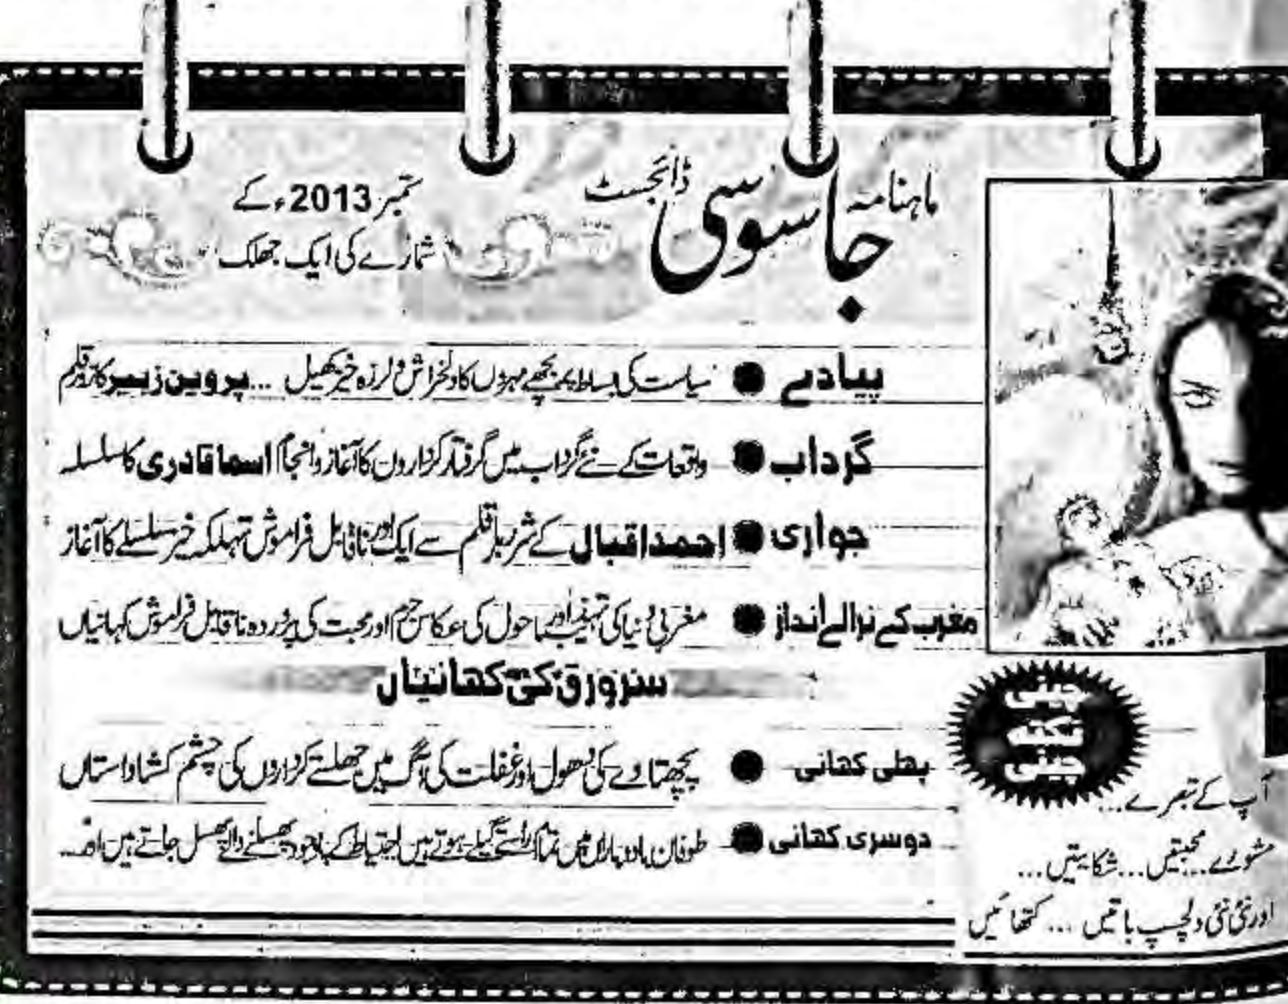 ماہنامہ جاسوسی ڈائجسٹ
ستمبر 2013ء کے
شمارے کی ایک جھلک
پیادے ● سیاست کی بساط پر بچھے مہروں کا دلخراش و لرزہ خیز کھیل ... پروین زبیر کا زور قلم
گرداب ● واقعات کے نئے گرداب میں گرفتار کرداروں کا آغاز و انجام اسما قادری کا سلسلہ
جواری ● احمد اقبال کے شرر بار قلم سے ایک اور ناقابل فراموش تہلکہ خیز سلسلے کا آغاز
مغرب کے نرالے انداز ● مغربی دنیا کی تہذیب اور ماحول کی عکاس جرم اور محبت کی پروردہ ناقابل فراموش کہانیاں
سرورق کی کہانیاں
پہلی کہانی ● پچھتاوے کی دھول اور غفلت کی آگ میں جھلستے کرداروں کی چشم کشا داستاں
دوسری کہانی ● طوفان باد و باراں میں تمام راستے گیلے ہوتے ہیں احتیاط کے باوجود پھسلنے والے پھسل جاتے ہیں اور...
چینی
نکتہ
چینی
آپ کے تبصرے...
مشورے... محبتیں... شکایتیں...
اور نئی نئی دلچسپ باتیں ... کتھائیں